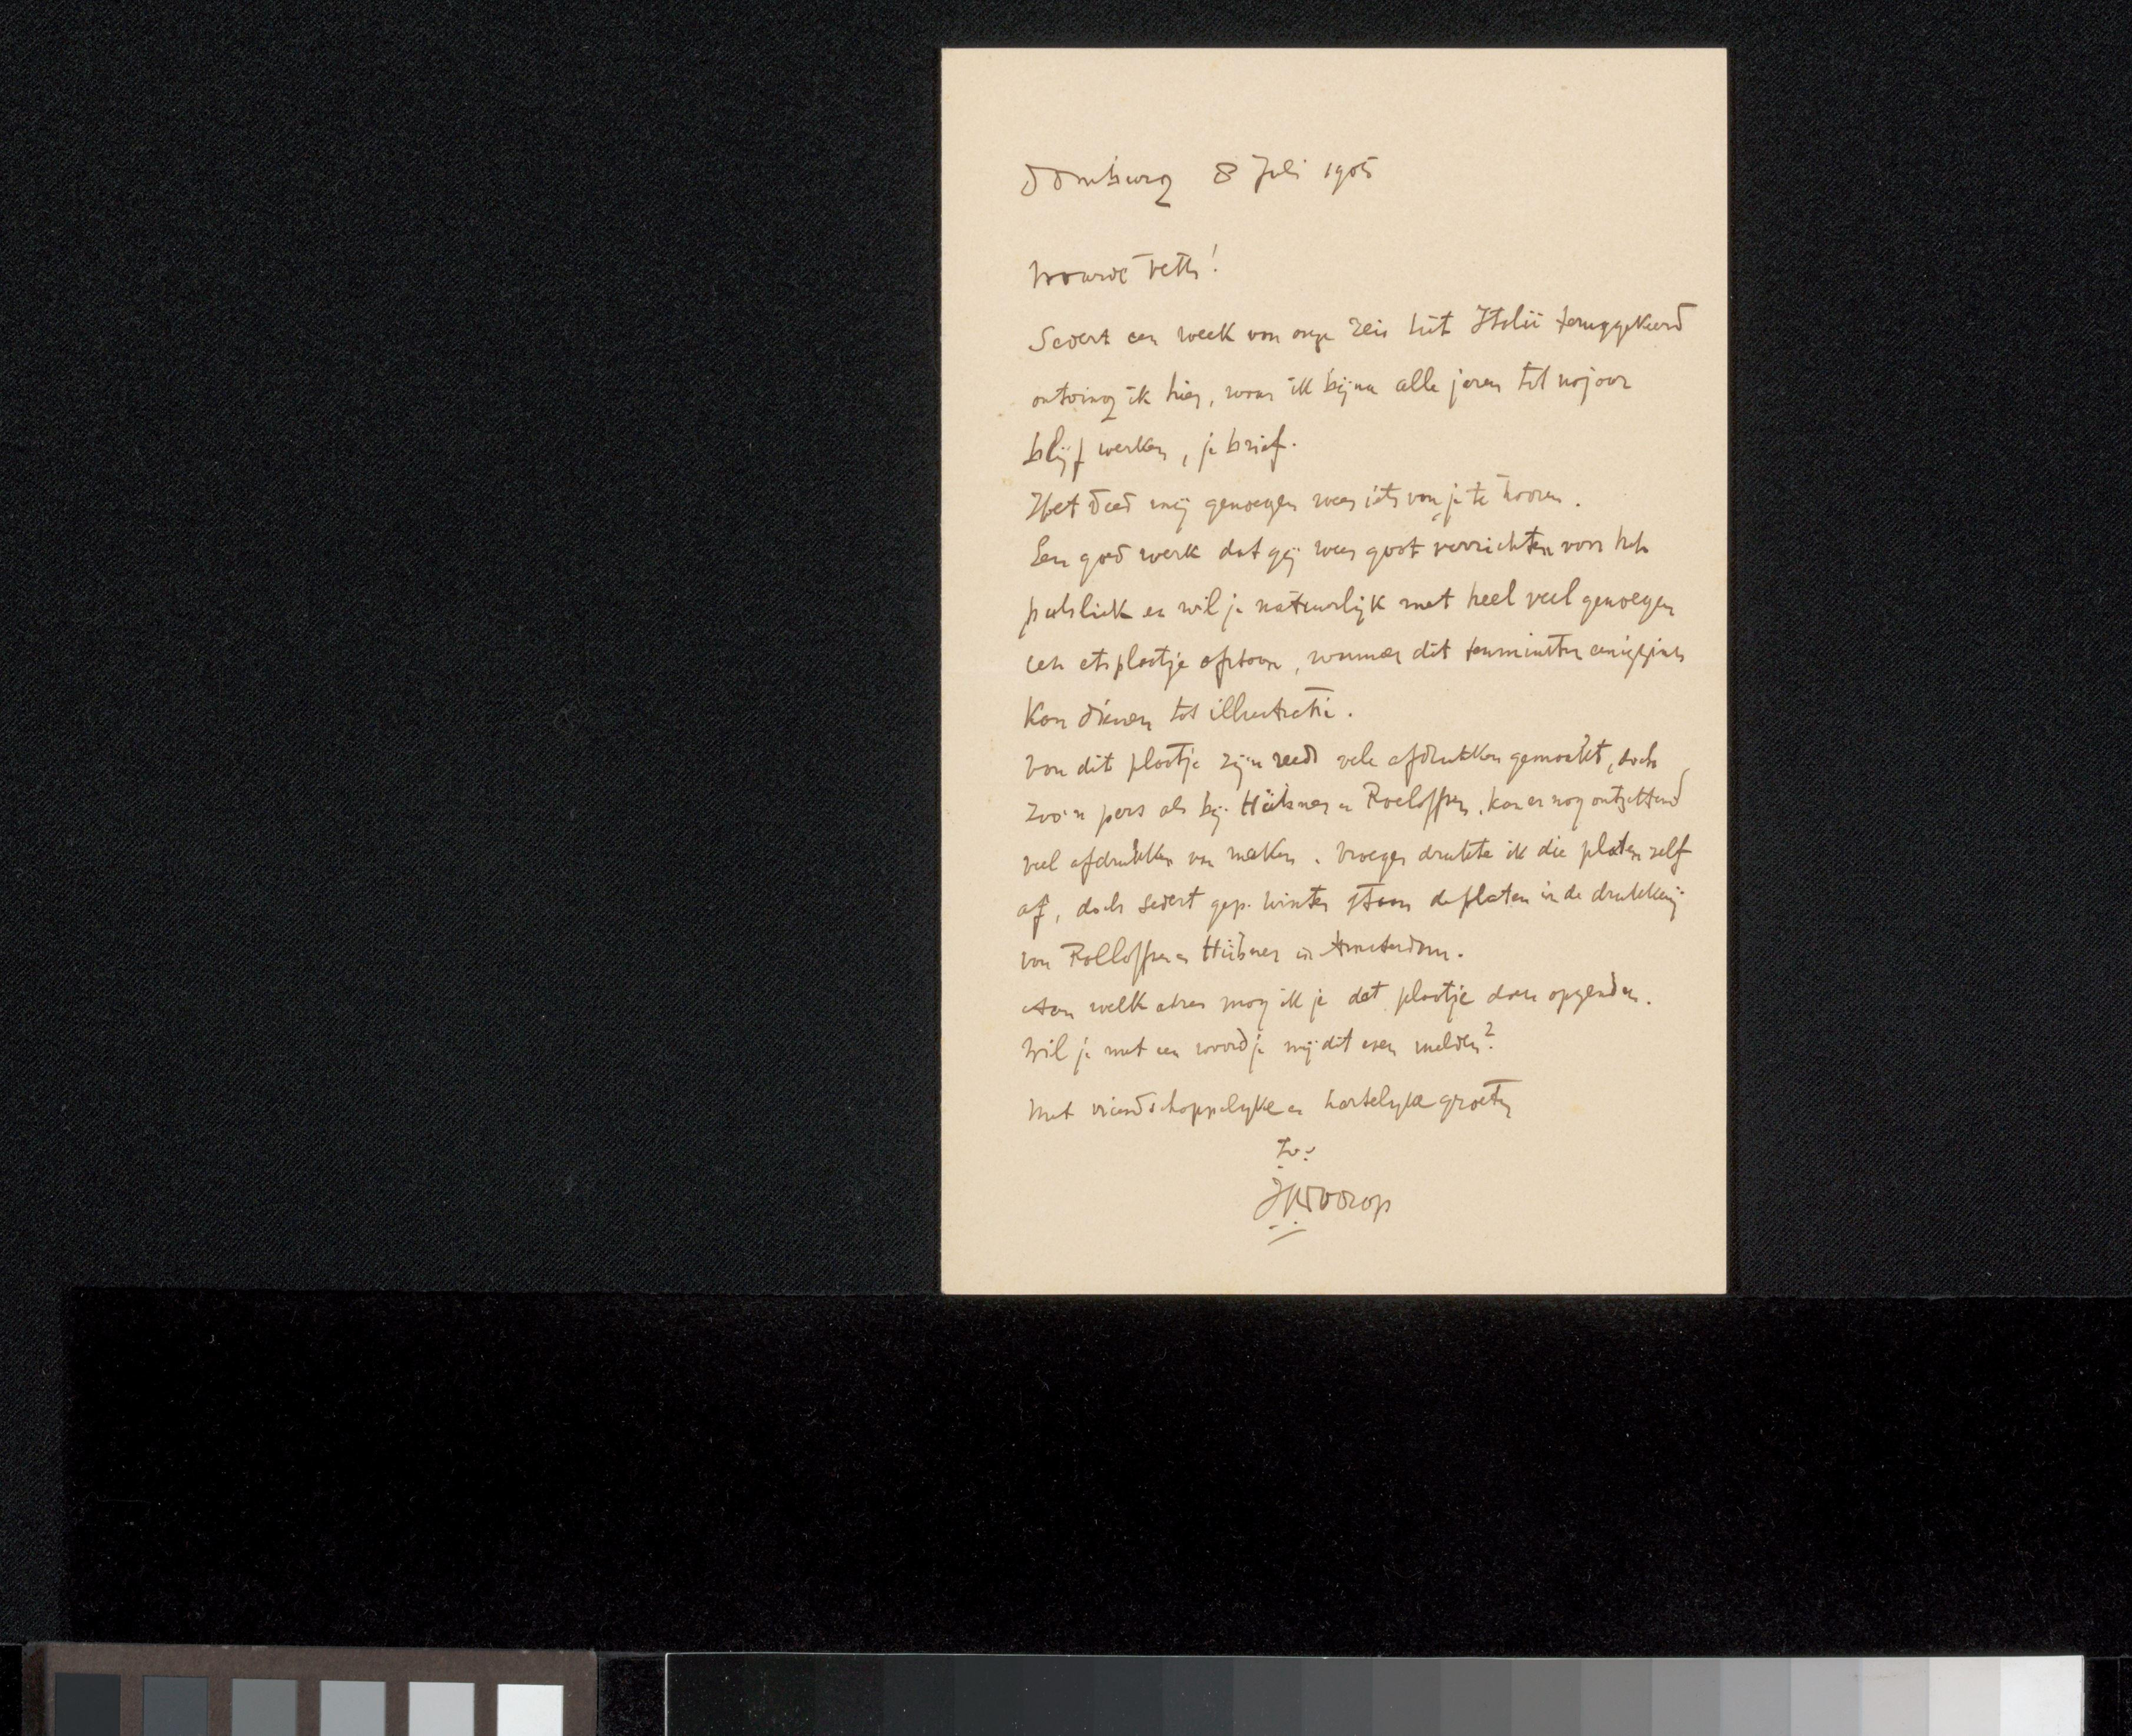 Domburg 8 Juli 1905
Waarde Veth!
Sedert een week van onze reis uit Italië teruggekeerd
ontving ik hier, waar ik bijna alle jaren tot najaar
blijf werken, je brief.
Het deed mij genoegen weer iets van je te hooren.
Een goed werk dat gij weer gaat verrichten voor het
publiek en wil je natuurlijk met heel veel genoegen
een etsplaatje afstaan, wanneer dit tenminste eenigzins
kan dienen tot illustratie.
Van dit plaatje zijn reeds vele afdrukken gemaakt, doch
zoo'n pers als bij Hübner en Roeloffzen, kan er nog ontzettend
veel afdrukken van maken. Vroeger drukte ik die platen zelf
af, doch sedert gep. winter staan de platen in de drukkerij
van Rolloffzen en Hübner in Amsterdam.
Aan welk adres mag ik je dat plaatje dan opzenden.
Wil je met een woordje mij dit even melden?
Met vriendschappelyke en hartelyke groeten
tv:
JThToorop